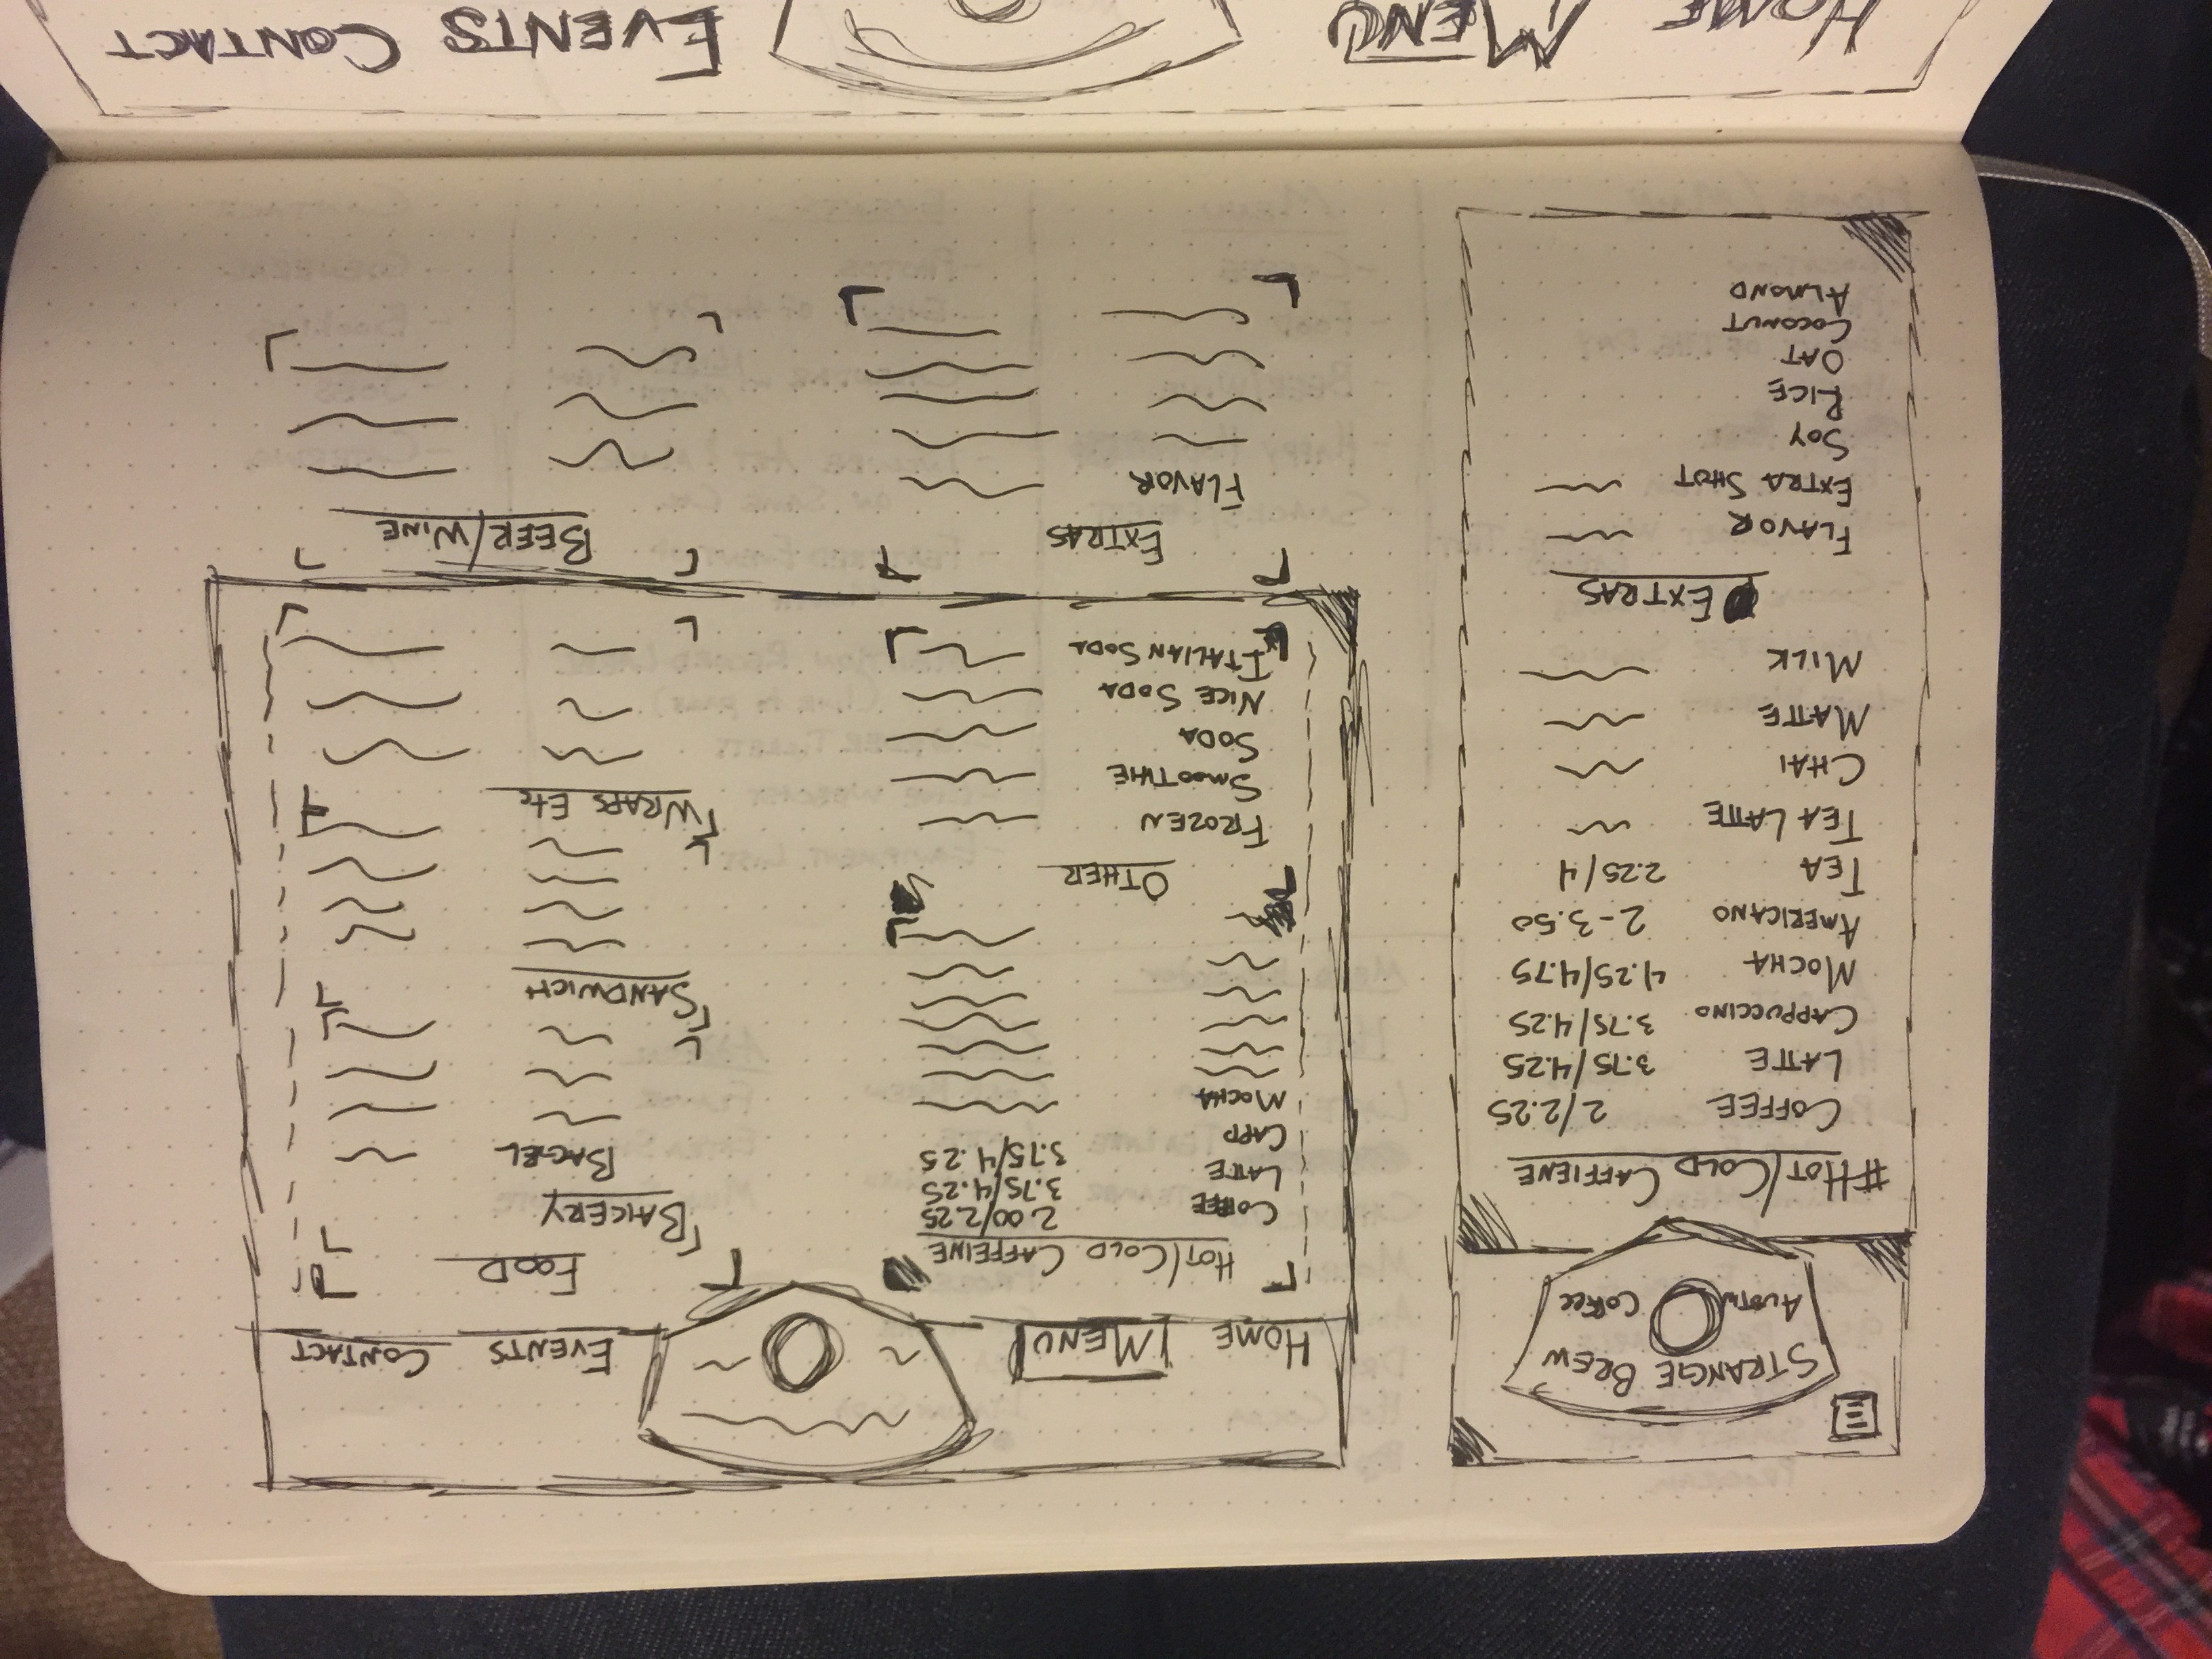 STRANGE BREW
AUSTIN COFFEE
#HOT/COLD CAFFIENE
COFFEE 2/2.25
LATTE 3.75/4.25
CAPPUCCINO 3.75/4.25
MOCHA 4.25/4.75
AMERICANO 2-3.50
TEA 2.25/4
TEA LATTE
CHAI
MATTE
MILK
EXTRAS
FLAVOR
EXTRA SHOT
SOY
RICE
OAT
COCONUT
ALMOND
HOME MENU EVENTS CONTACT
HOT/COLD CAFFEINE
COFFEE 2.00/2.25
LATTE 3.75/4.25
CAPP 3.75/4.25
MOCHA
OTHER
FROZEN
SMOOTHIE
SODA
NICE SODA
ITALIAN SODA
EXTRAS
FLAVOR
FOOD
BAKERY
BAGEL
SANDWICH
WRAPS ETC
BEER/WINE
HOME MENU EVENTS CONTACT